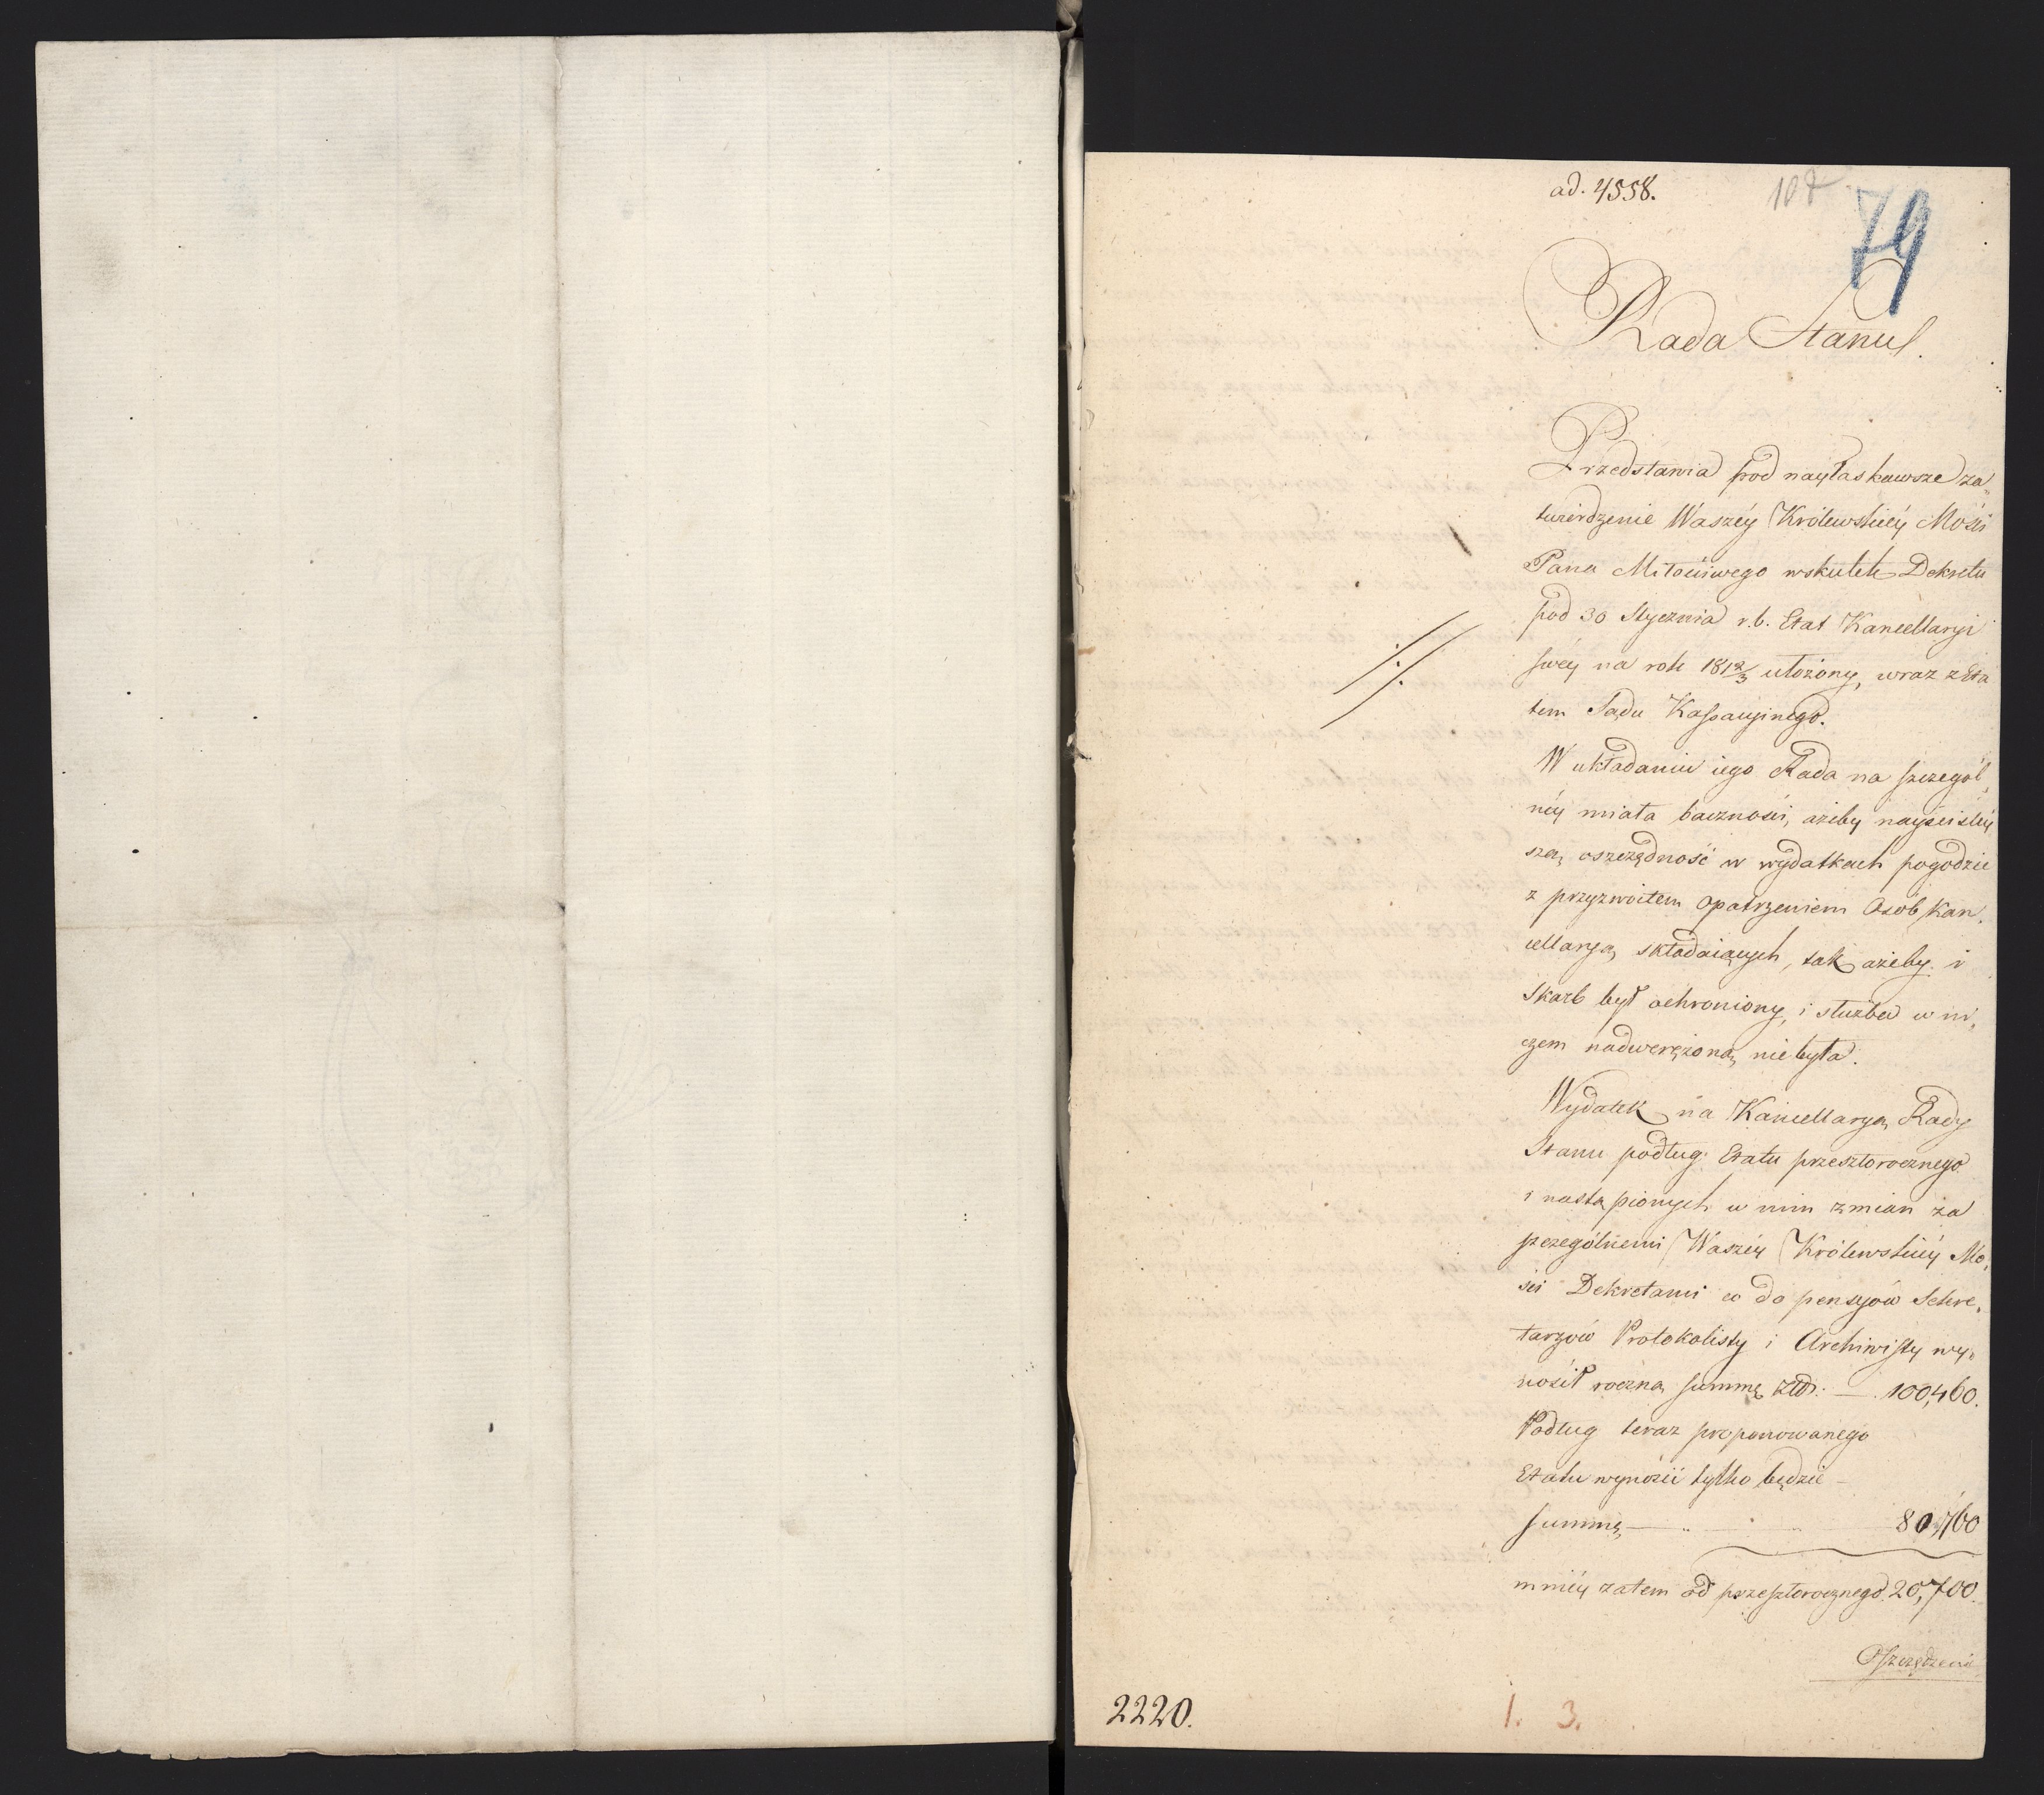 ad. 4558.
107
79
Rada Stanu.
Przedstawia pod nayłaskawsze za„
twierdzenie Waszéy Królewskiéy Mości
Pana Miłościwego wskutek Dekretu
pod 30 Stycznia r.b. Etat Kancellaryi
swéy na rok 181 2/3 ułożony, wraz z Eta
tem Sądu Kassacyinego.
W układaniu iego Rada na szczegól„
néy miała baczności, ażeby nayściśléy
szą oszczędność w wydatkach pogodzić
z przyzwoitem opatrzeniem Osób Kan„
cellaryą składaiących, tak ażeby i
Skarb był ochroniony, i służba w ni„
czem nadwerężoną nie była.
Wydatek na Kancellaryą Rady
Stanu podług Etatu przeszłorocznego
i nastąpionych w nim zmian za
szczególnemi Waszéy Królewskiéy Mo„
ści Dekretami co do pensyów Sekre„
tarzów Protokolisty i Archiwisty wy„
nosił roczną summę Złł: — 100,460.
Podług teraz proponowanego
Etatu wynosić tylko będzie —
summę — 80,760
mniéy zatem od przeszłorocznego 20,700.
Oszczędzenie
2220.
1. 3.